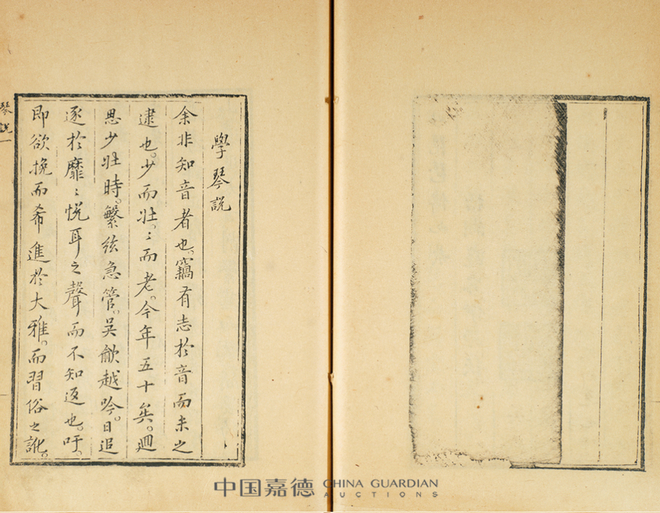 學琴説
余非知音者也。竊有志於音而未之
逮也。少而壯。〻而老。今年五十矣。迴
思少壯時。繁絃急管。吳歈越吟。日追
逐於靡〻悅耳之聲而不知返也。吁。
即欲挽而希進於大雅。而習俗之訛。
琴説一
中国嘉德 CHINA GUARDIAN
AUCTIONS